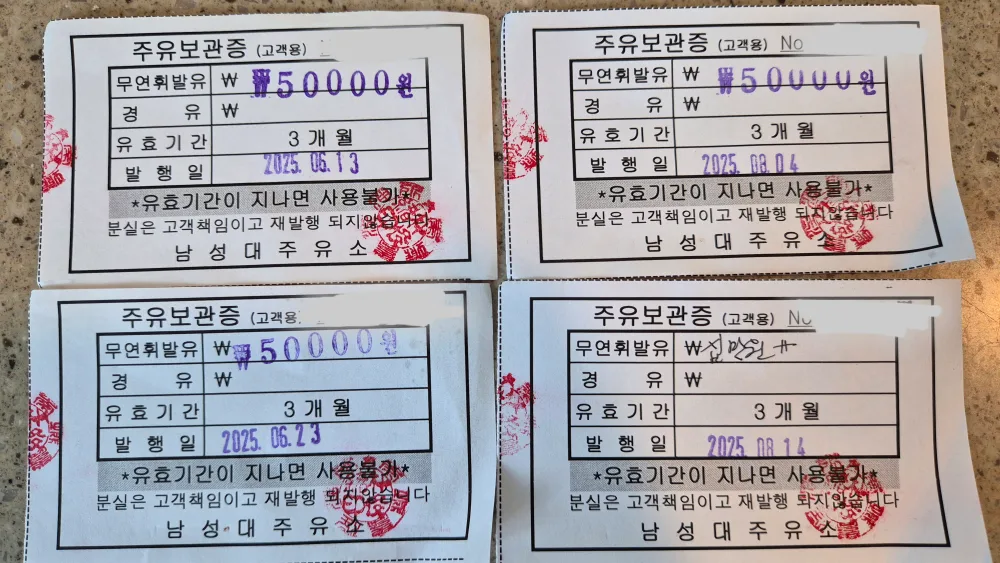 주유보관증 (고객용)
무연휘발유 ₩ ₩50000원
경 유 ₩
유효기간 3개월
발행일 2025.06.13
*유효기간이 지나면 사용불가*
분실은 고객책임이고 재발행 되지않습니다
남성대주유소
주유보관증 (고객용) No
무연휘발유 ₩ ₩50000원
경 유 ₩
유효기간 3개월
발행일 2025.08.04
*유효기간이 지나면 사용불가*
분실은 고객책임이고 재발행 되지않습니다
남성대주유소
주유보관증 (고객용)
무연휘발유 ₩ ₩50000원
경 유 ₩
유효기간 3개월
발행일 2025.06.23
*유효기간이 지나면 사용불가*
분실은 고객책임이고 재발행 되지않습니다
남성대주유소
주유보관증 (고객용) No
무연휘발유 ₩
경 유 ₩
유효기간 3개월
발행일 2025.08.14
*유효기간이 지나면 사용불가*
분실은 고객책임이고 재발행 되지않습니다
남성대주유소